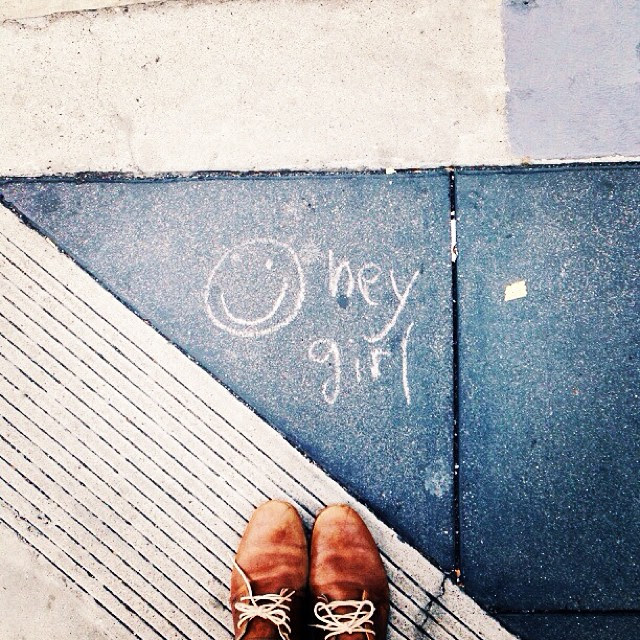 hey
girl